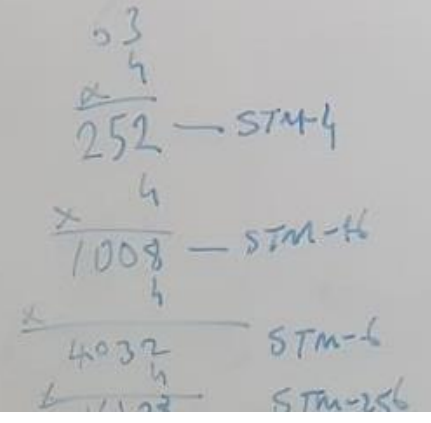 03
4
x
252 — STM-4
4
x
1008 — STM-16
4
x
4032 STM-6
4
x
STM-256